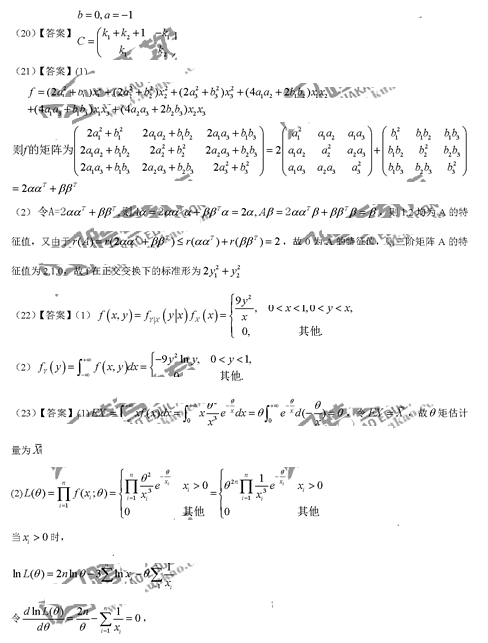 b = 0, a = −1
(20)【答案】 C = (k₁ + k₂ + 1  −k₁
k₁  k₂)
(21)【答案】(1)
f = (2a₁² + b₁²)x₁² + (2a₂² + b₂²)x₂² + (2a₃² + b₃²)x₃² + (4a₁a₂ + 2b₁b₂)x₁x₂
+(4a₁a₃ + b₁b₃)x₁x₃ + (4a₂a₃ + 2b₂b₃)x₂x₃
则f的矩阵为 (2a₁² + b₁²  2a₁a₂ + b₁b₂  2a₁a₃ + b₁b₃
2a₁a₂ + b₁b₂  2a₂² + b₂²  2a₂a₃ + b₂b₃
2a₁a₃ + b₁b₃  2a₂a₃ + b₂b₃  2a₃² + b₃²) = 2(a₁²  a₁a₂  a₁a₃
a₁a₂  a₂²  a₂a₃
a₁a₃  a₂a₃  a₃²) + (b₁²  b₁b₂  b₁b₃
b₁b₂  b₂²  b₂b₃
b₁b₃  b₂b₃  b₃²)
= 2ααᵀ + ββᵀ
(2) 令A=2ααᵀ + ββᵀ,则Aα = 2ααᵀα + ββᵀα = 2α, Aβ = 2ααᵀβ + ββᵀβ = β, 则1,2均为 A 的特
征值,又由于 r(A) = r(2ααᵀ + ββᵀ) ≤ r(ααᵀ) + r(ββᵀ) = 2 ,故 0 为 A 的特征值,则三阶矩阵 A 的特
征值为2,1,0,故f在正交变换下的标准形为 2y₁² + y₂²
(22)【答案】(1) f(x, y) = f_{Y|X}(y|x) f_X(x) = { 9y²/x, 0 < x < 1, 0 < y < x,
0, 其他.
(2) f_Y(y) = ∫_{−∞}^{+∞} f(x, y)dx = { −9y² ln y, 0 < y < 1,
0 其他.
(23)【答案】(1) EX = ∫ xf(x)dx = ∫₀^{+∞} x θ²/x³ e^{−θ/x} dx = θ∫₀^{+∞} e^{−θ/x} d(−θ/x) = θ,令 EX = X̄ ,故 θ 矩估计
量为 X̄
(2) L(θ) = ∏_{i=1}^{n} f(xᵢ; θ) = { ∏_{i=1}^{n} θ²/xᵢ³ e^{−θ/xᵢ}  xᵢ > 0
0  其他 = { θ^{2n} ∏_{i=1}^{n} 1/xᵢ³ e^{−θ/xᵢ}  xᵢ > 0
0  其他
当 xᵢ > 0 时,
ln L(θ) = 2n ln θ − 3∑ ln xᵢ − θ∑ 1/xᵢ
令 d ln L(θ)/dθ = 2n/θ − ∑_{i=1}^{n} 1/xᵢ = 0 ,